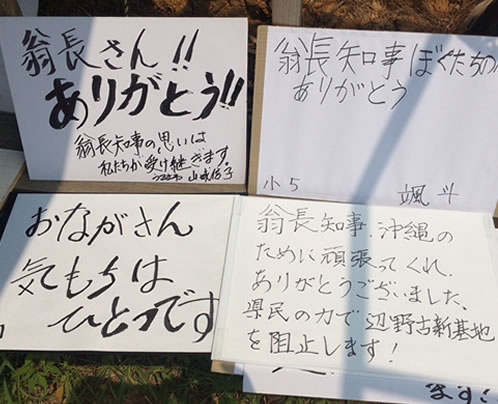 翁長さん!!
ありがとう!!
翁長知事の思いは
私たちが受け継ぎます。
翁長知事ぼくたちの
ありがとう
小5
颯斗
おながさん
気もちは
ひとつです
翁長知事、沖縄の
ために頑張ってくれ、
ありがとうございました、
県民の力で辺野古新基地
を阻止します!
ます!